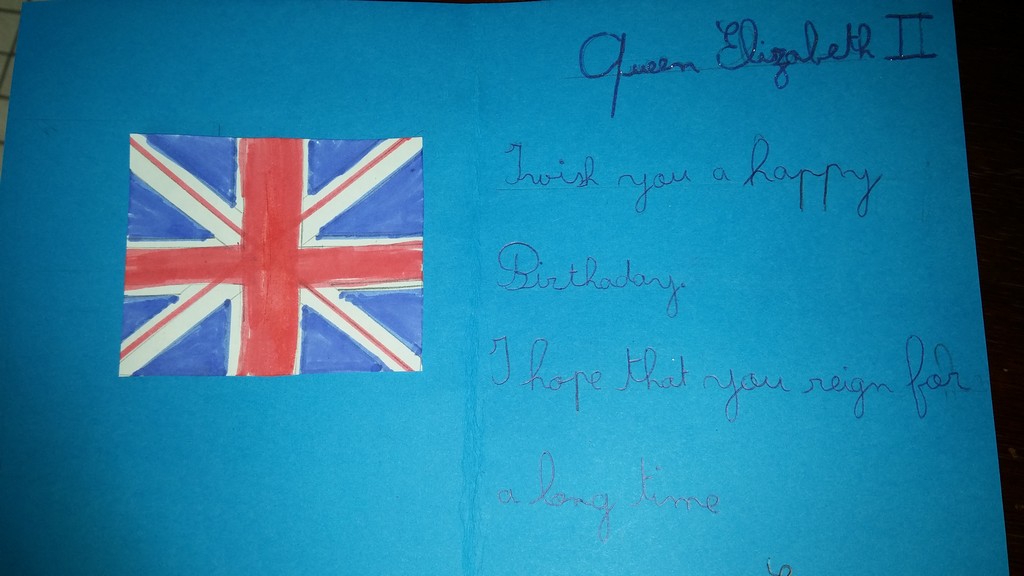 Queen Elizabeth II
I wish you a happy
Birthaday.
I hope that you reign for
a long time